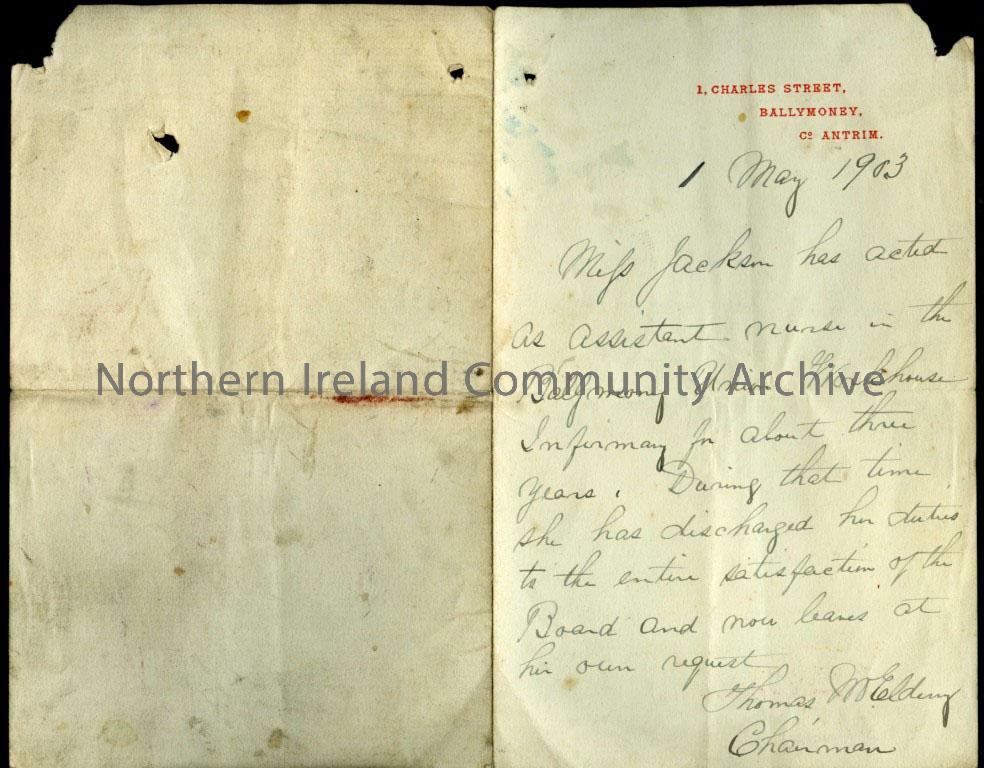 1, CHARLES STREET,
BALLYMONEY,
Co ANTRIM.
1 May 1903
Miss Jackson has acted
as assistant nurse in the
Ballymoney Union Workhouse
Northern Ireland Community Archive
Infirmary for about three
years. During that time
she has discharged her duties
to the entire satisfaction of the
Board and now leaves at
her own request
Thomas McElderry
Chairman